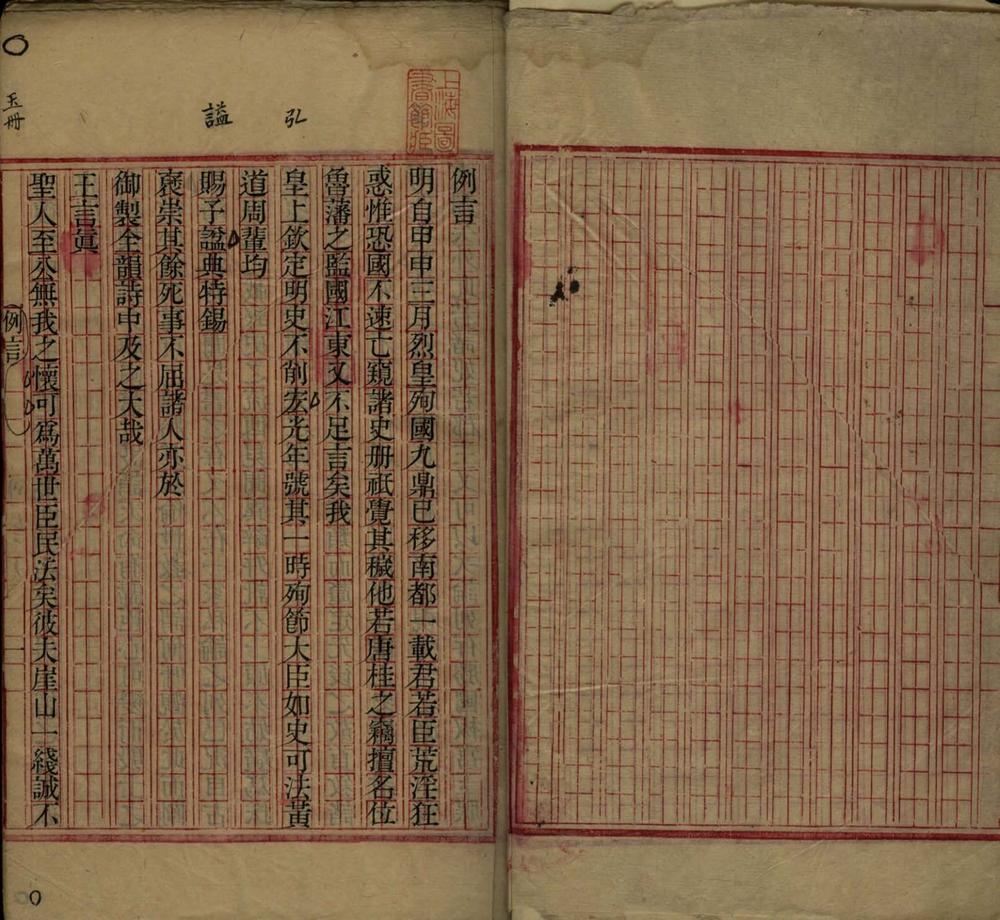 上海圖
書館藏
弘
謚
玉册
例言
明自甲申三月烈皇殉國九鼎已移南都一載君若臣荒淫狂
惑惟恐國不速亡窺諸史册祇覺其穢他若唐桂之竊擅名位
魯藩之監國江東又不足言矣我
皇上欽定明史不削宏光年號其一時殉節大臣如史可法黃
道周輩均
賜予謚典特錫
褒崇其餘死事不屈諸人亦於
御製全韻詩中及之大哉
王言眞
聖人至公無我之懷可爲萬世臣民法矣彼夫崖山一綫誠不
例言
一